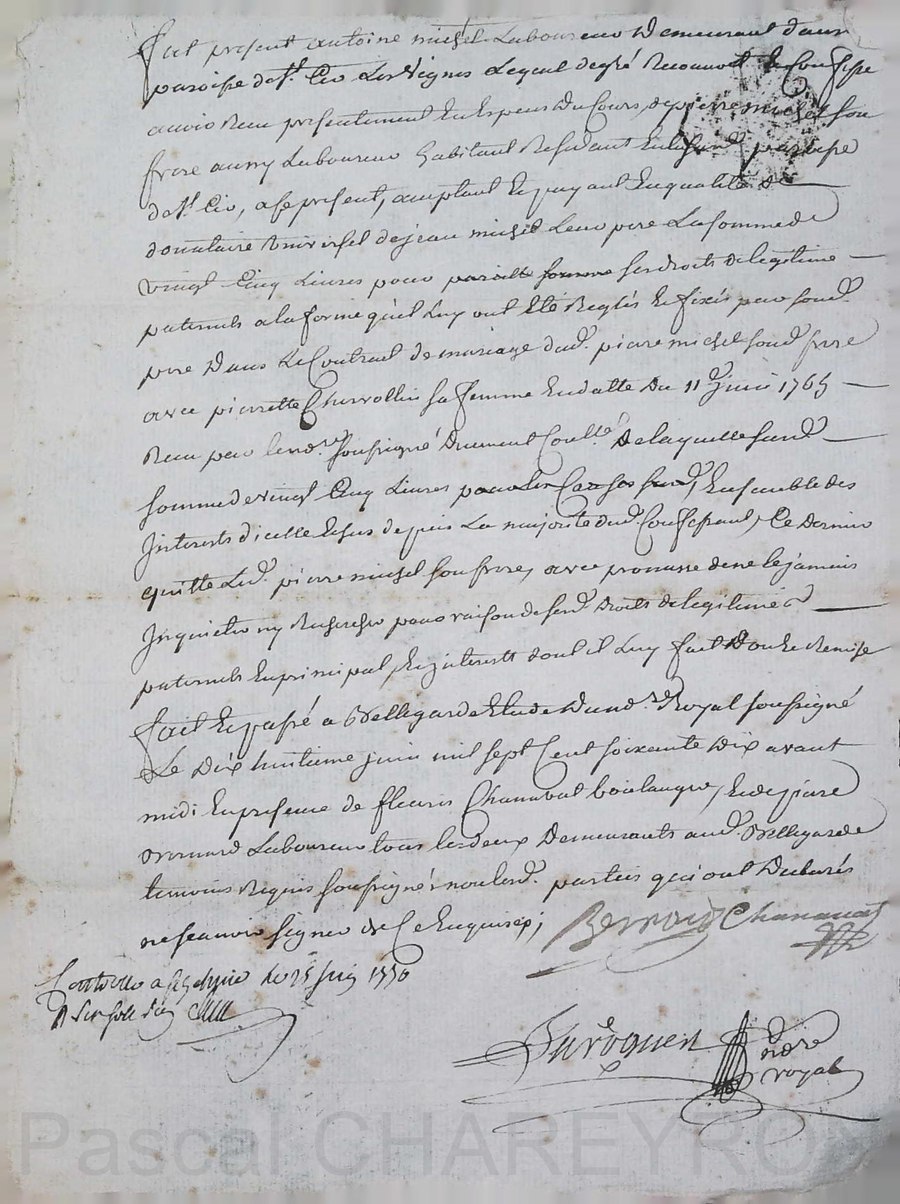 fut présent antoine michel Laboureur Demeurant dans
paroisse de st Cir Les Vignes Lequel de gré Reconnoit et Confesse
avoir Reçu présentement En Especes Du Cours, de pierre michel son
frere aussy Laboureur habitant Résidant En la susd. paroisse
de st Cir, a ce présent, acceptant Et payant En qualité de
donataire universel de jean michel Leur pere La somme de
vingt Cinq Livres pour ses droits de legitime
paternels a la forme qu'ils Luy ont Eté Reglés Et fixés par sond.
pere Dans Le Contrat de mariage dud. pierre michel sond. frere
avec pierrette sa femme En datte Du 11e juin 1765
Recu par le nore. soussigné Duement Collé De laquelle susd.
somme de vingt Cinq Livres pour les Causes susd, Ensemble des
Interests d'icelle Echus depuis La majorité dud. Confessant, Ce Dernier
quitte Led. pierre michel son frere, avec promesse de ne le jamais
Inquieter ny Rechercher pour raison de sesd. Droits de legitime
paternels En principal, Et interests dont il Luy fait Don Et Remise
fait Et passé a Bellegarde Etude Du nore. Royal soussigné
Le Dix huitieme juin mil sept Cent soixante Dix avant
midi En présence de fleuris Chanavat boulanger, Et de pierre
Bernard Laboureur tous les deux Demeurants aud. Bellegarde
temoins Requis soussignés non lesd. parties qui ont Declarés
ne scavoir signer de Ce Enquises;
Bernard Chanavat
Controllé a st galmier le 25 juin 1770
R sols
nore
royal
Pascal CHAREYRON